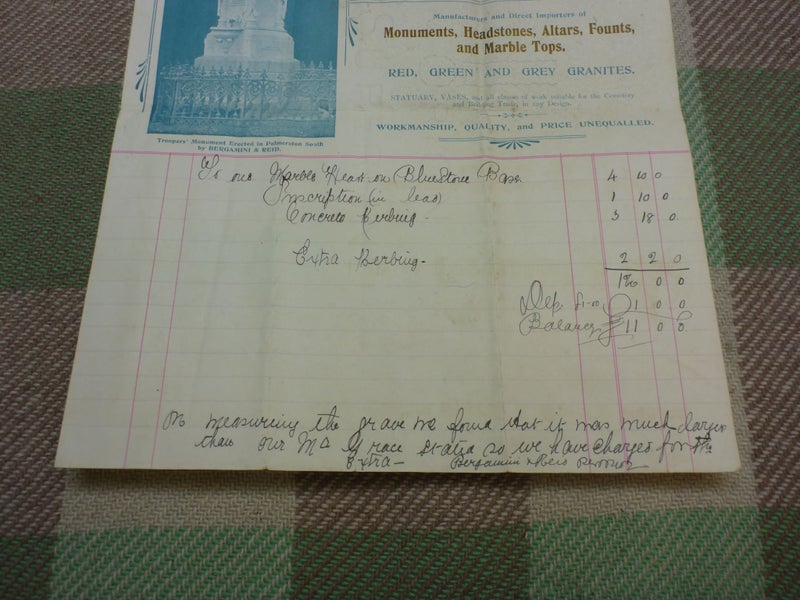 Manufacturers and Direct Importers of
Monuments, Headstones, Altars, Founts,
and Marble Tops.
RED, GREEN AND GREY GRANITES.
STATUARY, VASES, and all classes of work suitable for the Cemetery
and Building Trade, in any Design.
WORKMANSHIP, QUALITY, and PRICE UNEQUALLED.
Troopers' Monument Erected in Palmerston South
by BERGAMINI & REID.
To one Marble Heart on Bluestone Base 4 10 0
Inscription (in lead) 1 10 0
Concrete Kerbing - 3 18 0
Extra Kerbing - 2 2 0
12 0 0
Dep. 1 0 0
Balance £ 11 0 0
On measuring the grave we found that it was much larger
than our Mr Grace stated so we have charged for the
Extra - Bergamini & Reid